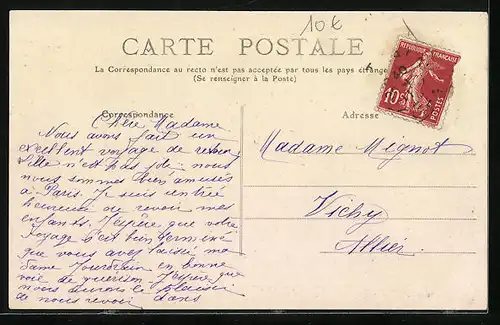 10€
CARTE POSTALE
La Correspondance au recto n'est pas acceptée par tous les pays étrange
(Se renseigner à la Poste)
REPUBLIQUE FRANÇAISE
10c
POSTES
Correspondance
Adresse
Chère Madame
Nous avons fait un
excellent voyage de retour
n'est pas nous
nous sommes bien amusés
à Paris. Je suis rentrée
heureuse de revoir mes
enfants. J'espère que votre
voyage s'est bien terminé
que vous avez laissé ma
dame Jourdain en bonne
voie de guérison J'espère que
nous aurons le plaisir
de nous revoir dans
Madame Mignot
Vichy
Allier